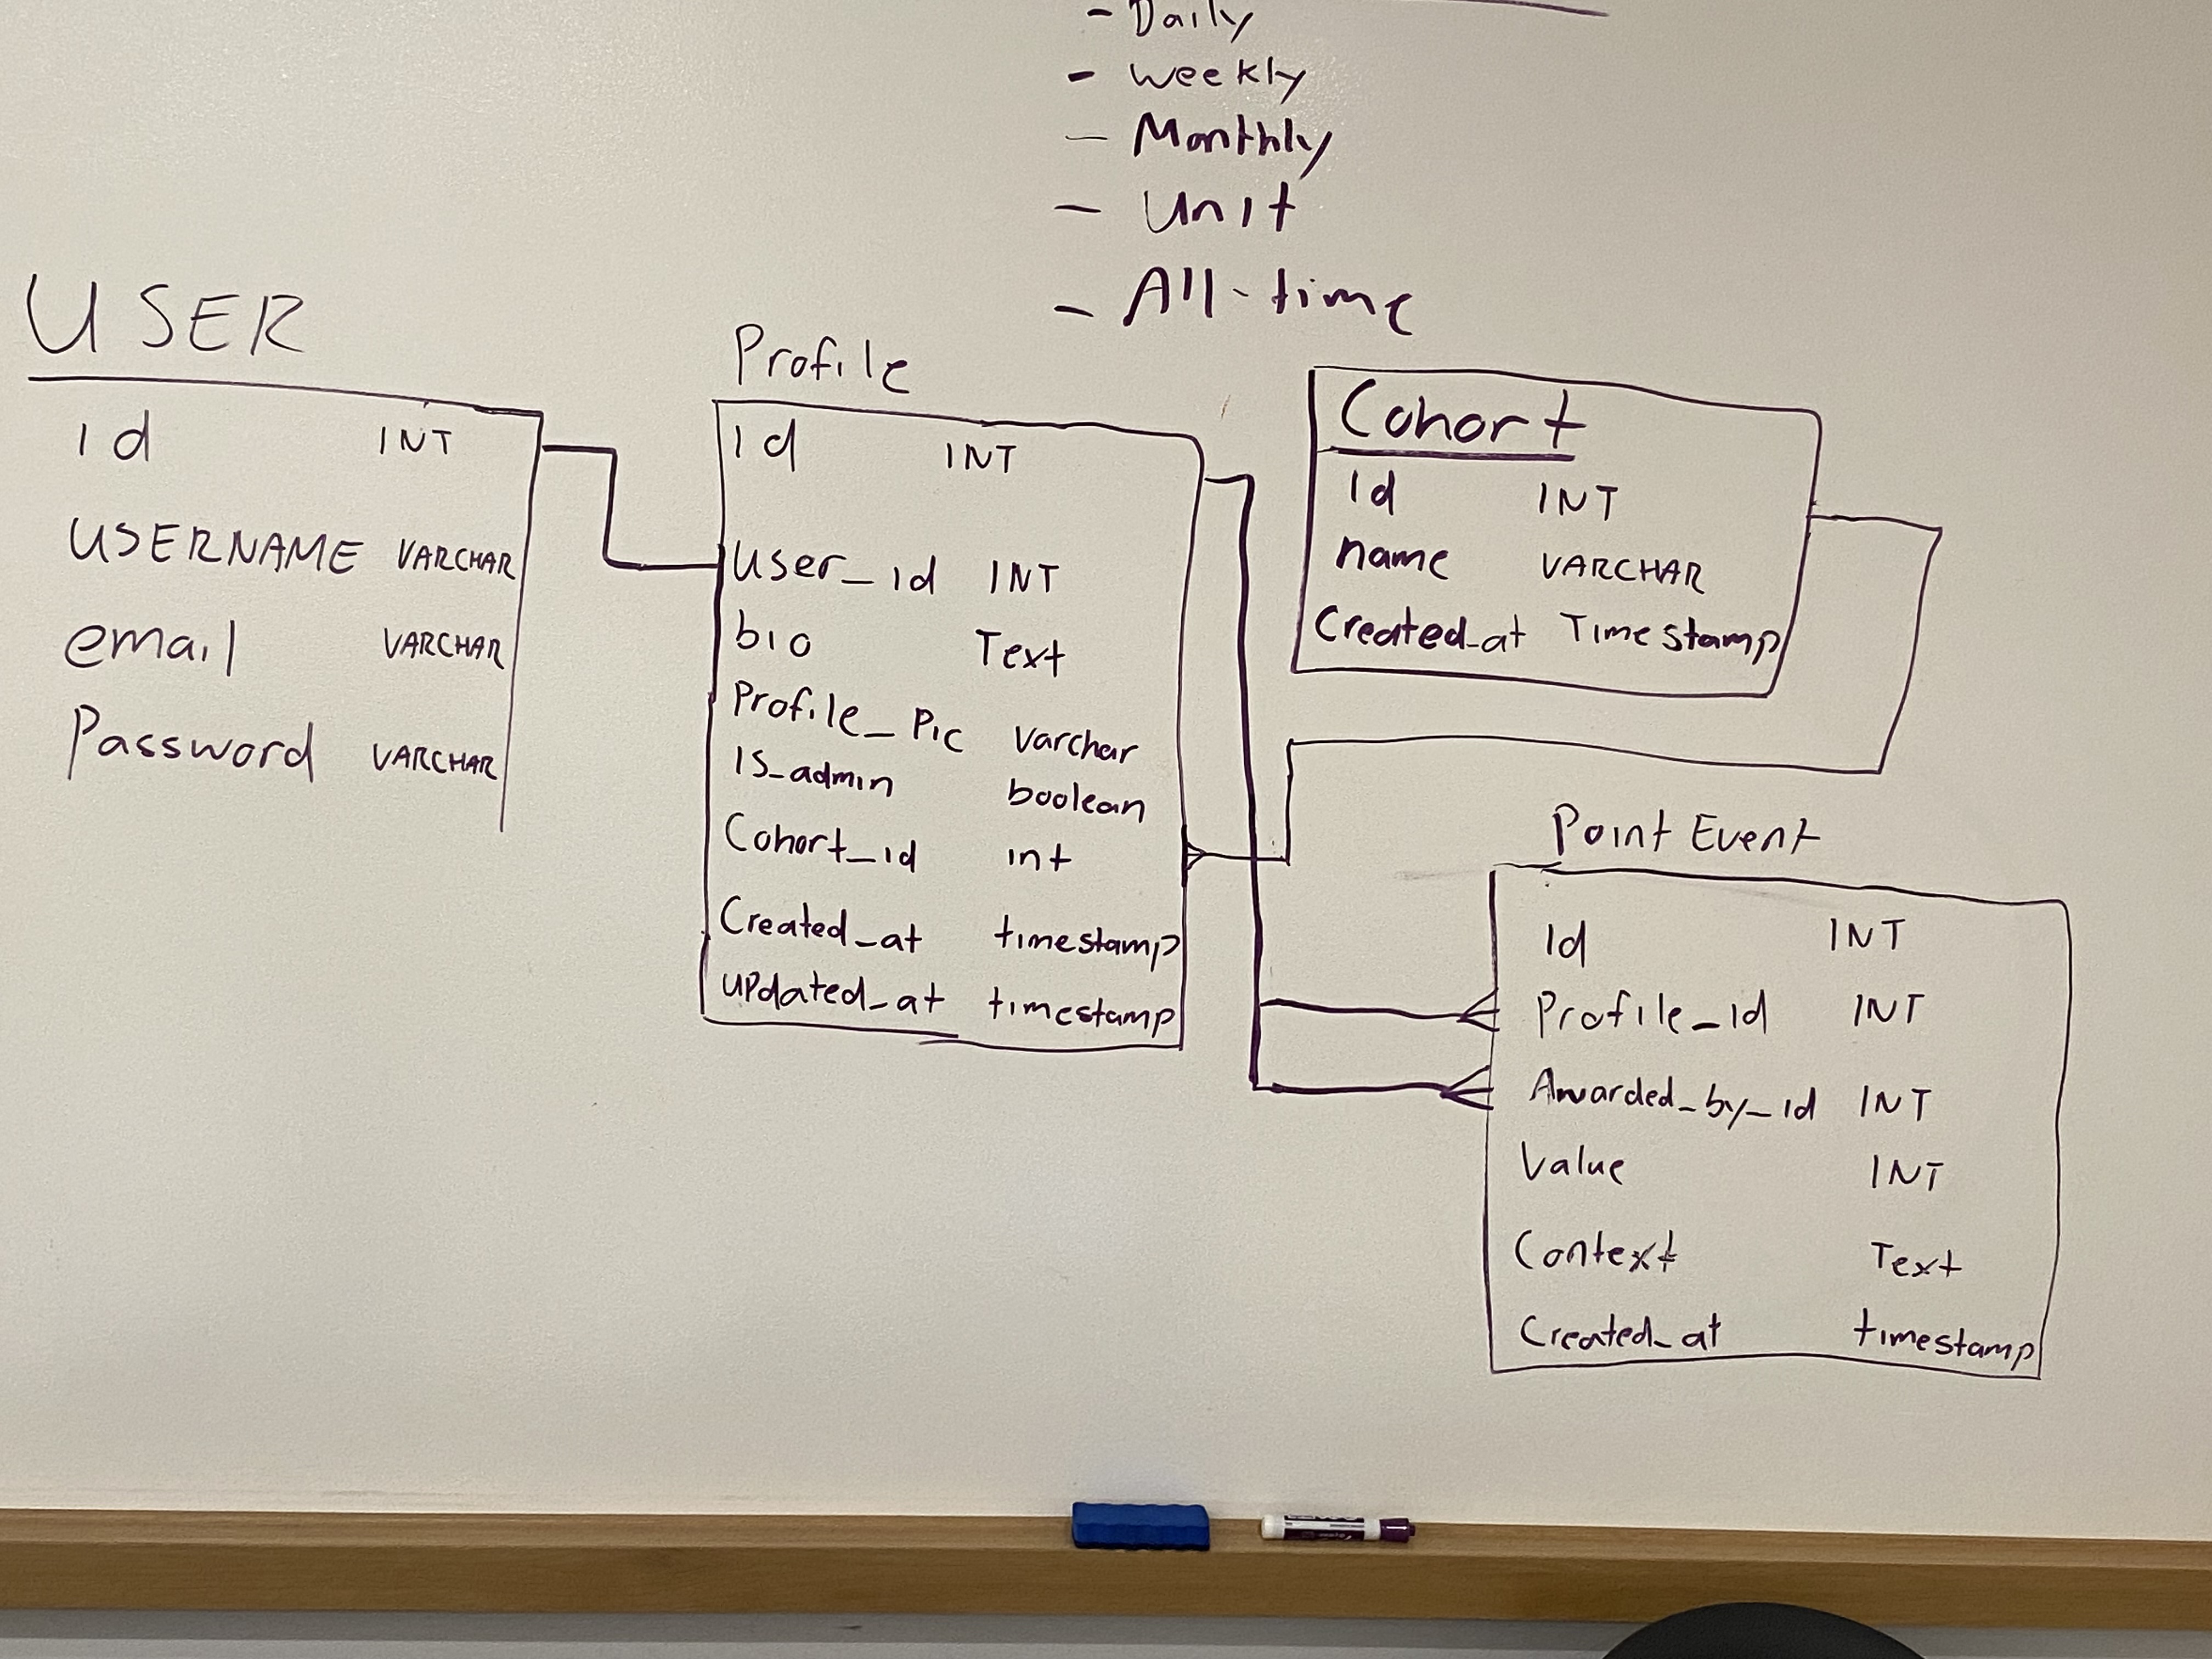 - Daily
- weekly
- Monthly
- Unit
- All-time
USER
id INT
USERNAME VARCHAR
email VARCHAR
Password VARCHAR
Profile
id INT
user_id INT
bio Text
Profile_Pic varchar
is_admin boolean
Cohort_id int
Created_at timestamp
updated_at timestamp
Cohort
id INT
name VARCHAR
Created_at Timestamp
Point Event
id INT
Profile_id INT
Awarded_by_id INT
Value INT
Context Text
Created_at timestamp